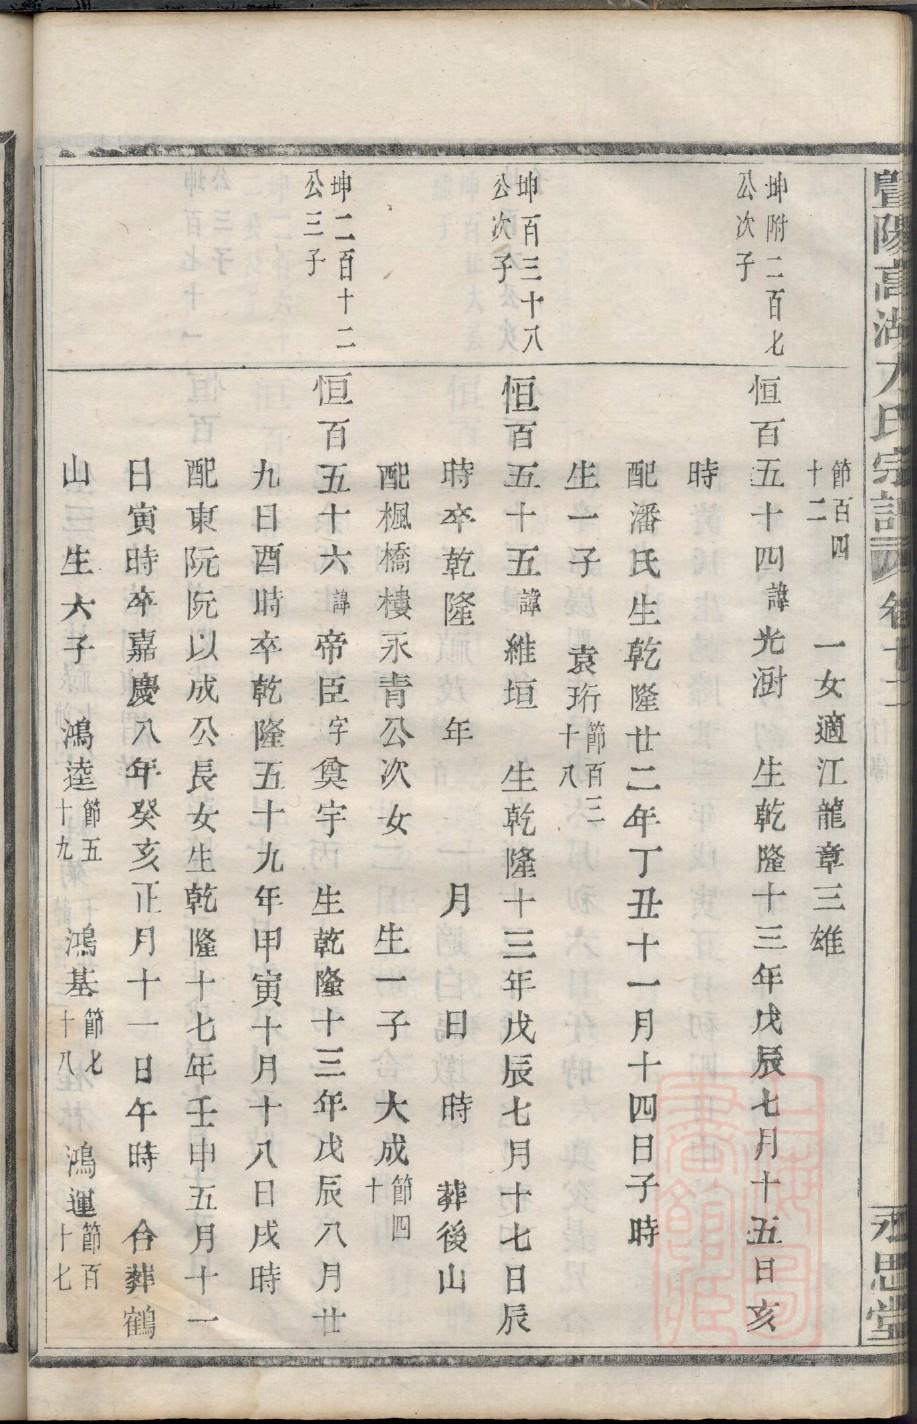 暨陽高湖 氏宗譜 卷十二
永思堂
節百四
十二
一女適江龍章三雄
坤附二百七
公次子
恒百五十四諱光澍 生乾隆十三年戊辰七月十五日亥
時
配潘氏生乾隆廿二年丁丑十一月十四日子時
生一子 袁珩節百三十八
坤百三十八
公次子
恒百五十五諱維垣 生乾隆十三年戊辰七月十七日辰
時卒乾隆 年 月 日 時 葬後山
配楓橋樓永青公次女 生一子 大成節四十
坤二百十二
公三子
恒百五十六諱帝臣字奠宇 生乾隆十三年戊辰八月廿
九日酉時卒乾隆五十九年甲寅十月十八日戌時
配東阮阮以成公長女生乾隆十七年壬申五月十一
日寅時卒嘉慶八年癸亥正月十一日午時 合葬鶴
山 生六子 鴻逵節五十九 鴻基節七十八 鴻運節百十七